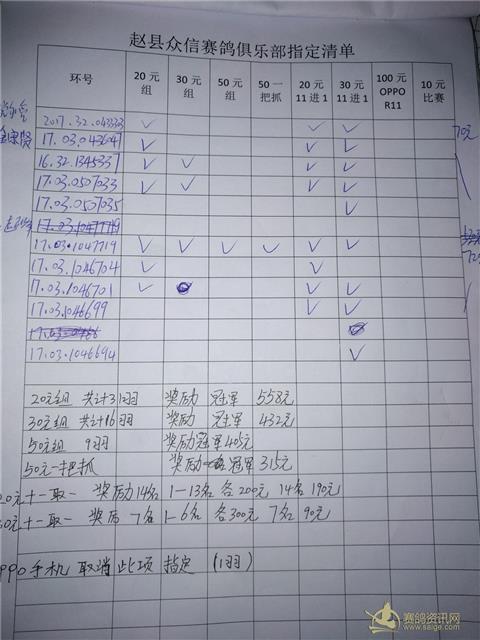 赵县众信赛鸽俱乐部指定清单
环号 20元组 30元组 50元组 50一把抓 20元11进1 30元11进1 100元OPPO R11 10元比赛
2017.32.043333 ✓ ✓ ✓
17.03.0436047 ✓ ✓ ✓ 70元
16.32.1345337 ✓ ✓ ✓ ✓
17.03.0507033 ✓ ✓ ✓ ✓
17.03.0507035 ✓
17.03.1047719
17.03.1047719 ✓ ✓ ✓ ✓ ✓ ✓
17.03.1046704 ✓ ✓
17.03.1046701 ✓ ✓ ✓
17.03.1046699 ✓ ✓
17.03.1046694 ✓
20元组 共计31羽 奖励 冠军 558元
30元组 共计16羽 奖励 冠军 432元
50元组 9羽 奖励冠军405元
50元一把抓 奖励 冠军 315元
20元十一取一 奖励14名 1—13名 各200元 14名 190元
30元十一取一 奖励 7名 1—6名 各300元 7名 90元
手机 取消此项 指定 (1羽)
赛鸽资讯网
www.saige.com